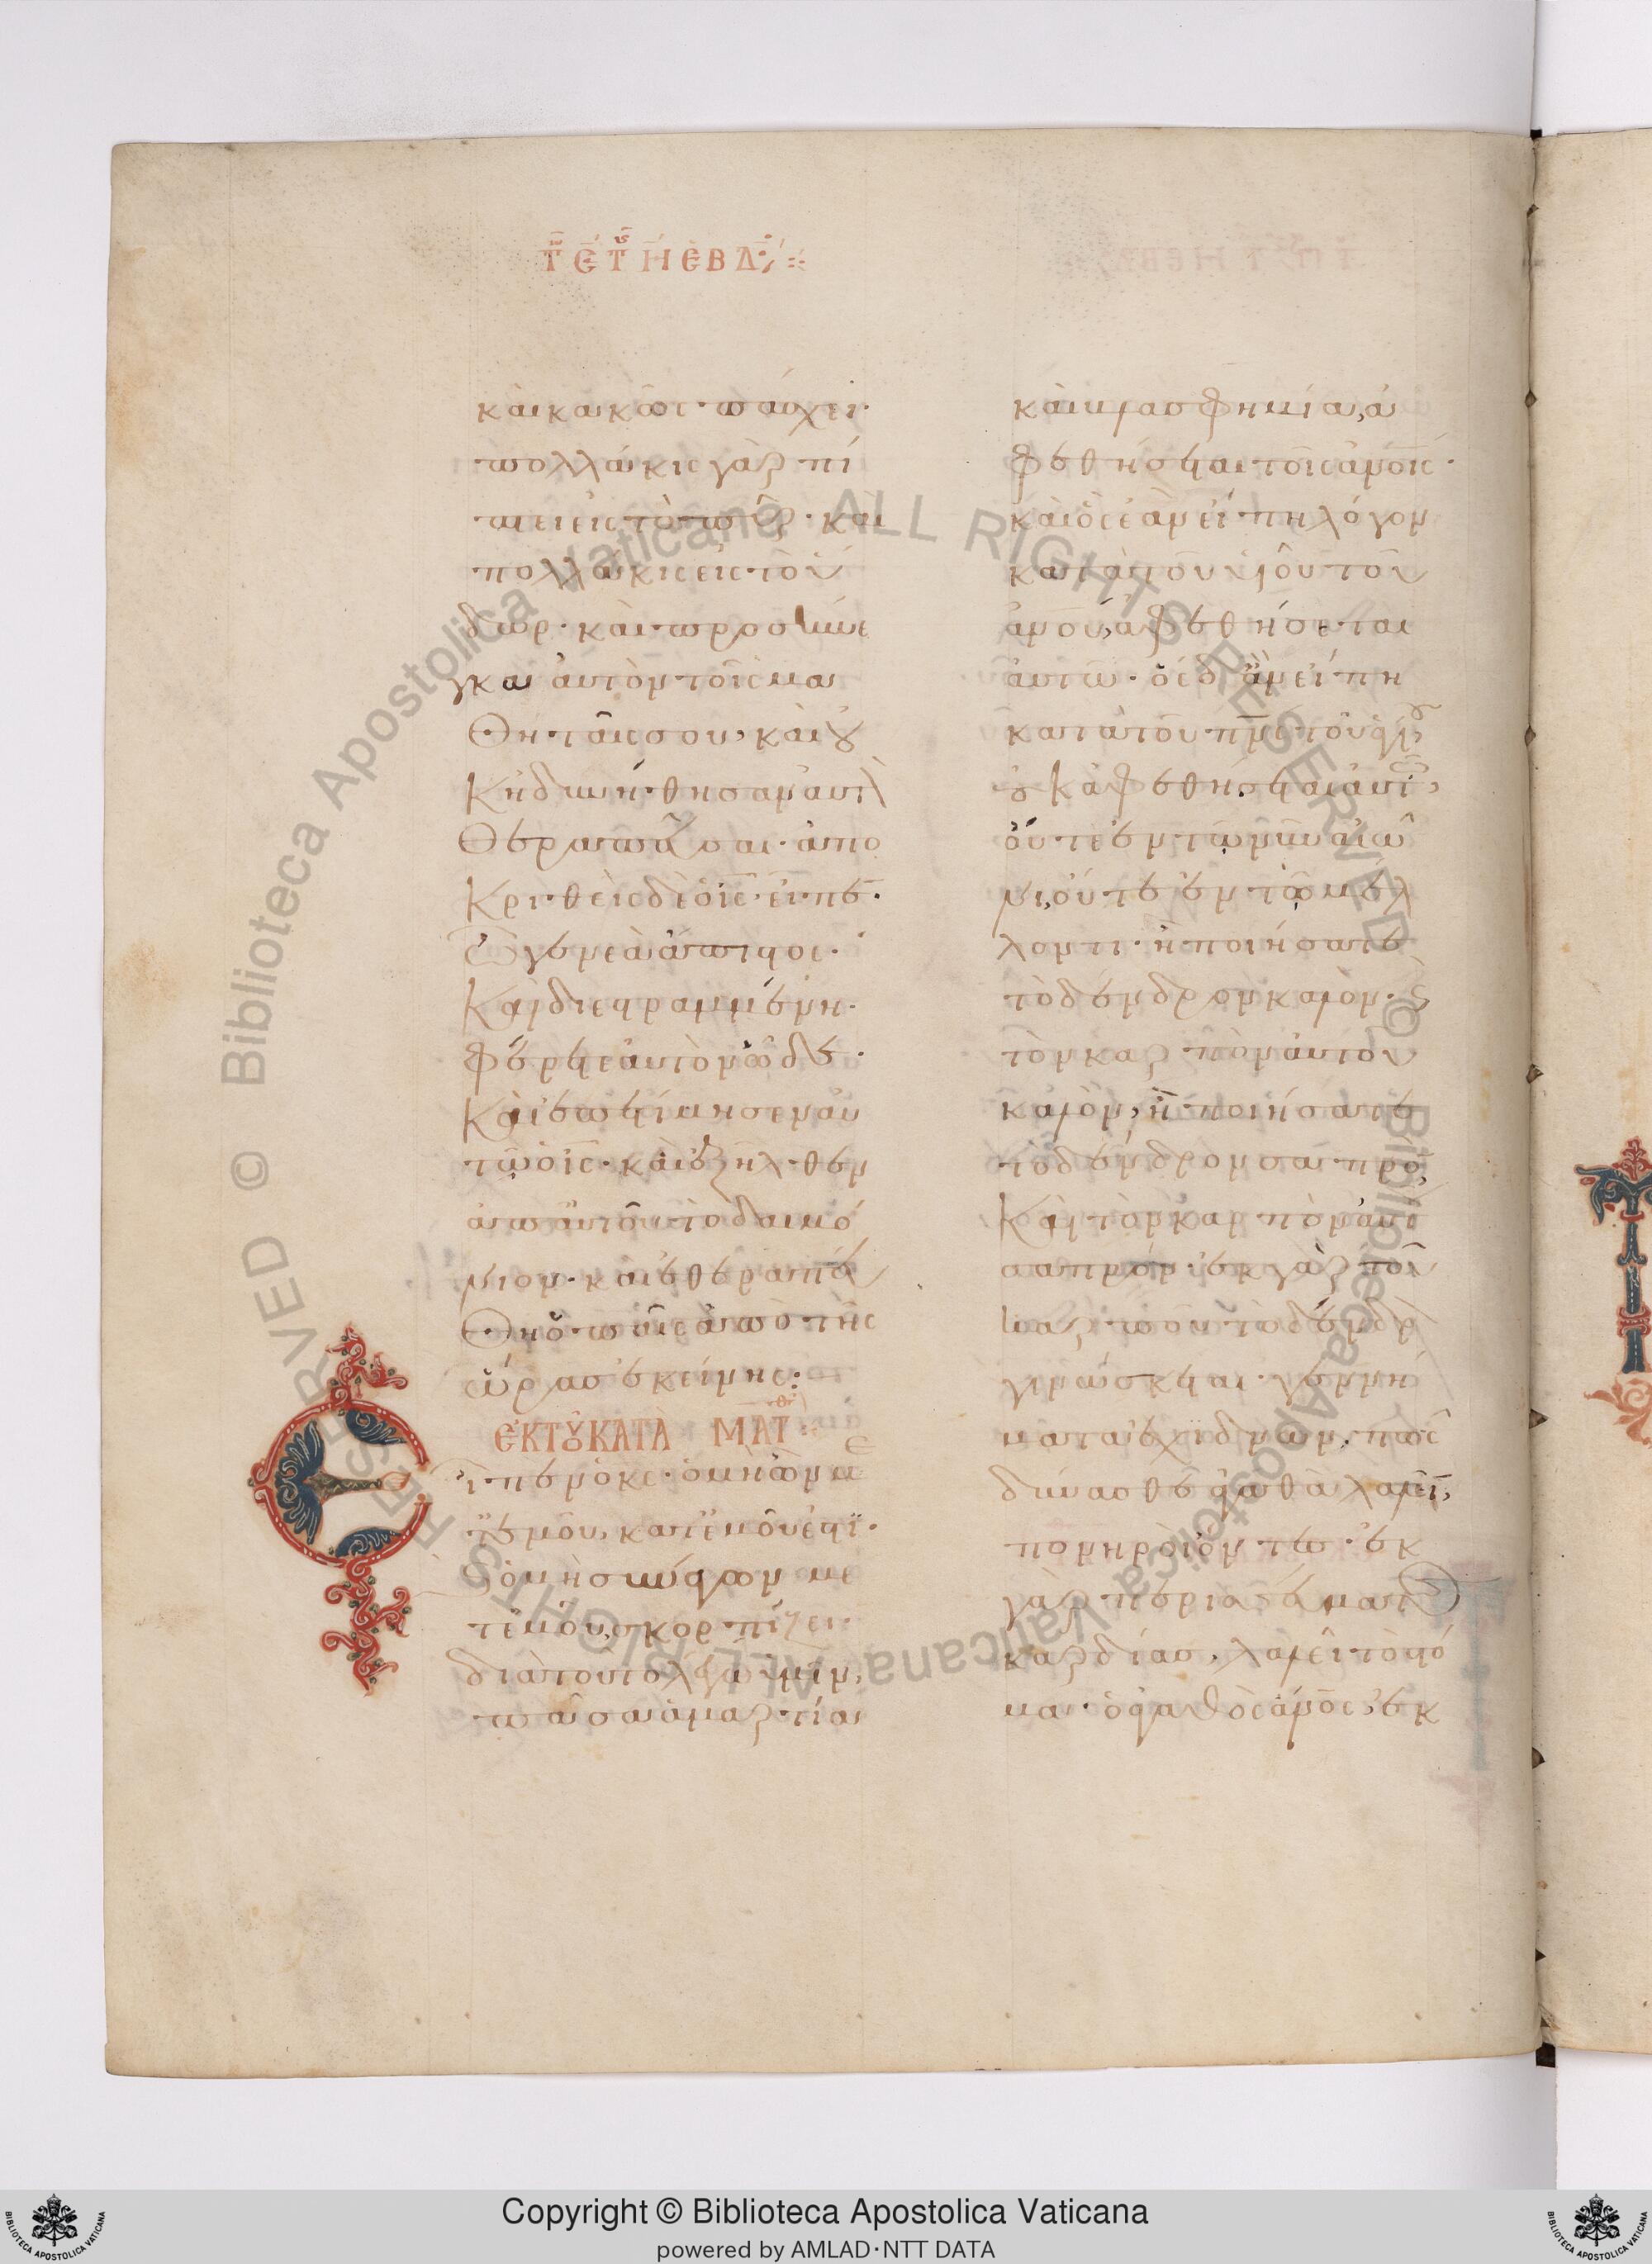 τῇ ε̄ τῆς η̄ ἑβδ
καὶ κακῶς πάσχει·
πολλάκις γὰρ πί
πτει εἰς τὸ πῦρ· καὶ
πολλάκις εἰς τὸ ὕ
δωρ· καὶ προσήνε
γκα αὐτὸν τοῖς μα
θηταῖς σου, καὶ οὐ
κ ἠδυνήθησαν αὐτὸν
θεραπεῦσαι· ἀπο
κριθεὶς δὲ ὁ ις εἶπεν·
ὦ γενεὰ ἄπιστος·
καὶ διεστραμμένη·
φέρετε αὐτὸν ὧδε·
καὶ ἐπετίμησεν αὐ
τῷ ὁ ις· καὶ ἐξῆλθεν
ἀπ αὐτοῦ τὸ δαιμό
νιον· καὶ ἐθεραπεύ
θη ὁ παῖς ἀπὸ τῆς
ὥρας ἐκείνης:
ἐκ τοῦ κατὰ ματθ
Εἶπεν ὁ κς· ὁ μὴ ὢν με
τ ἐμοῦ, κατ ἐμοῦ ἐστι·
καὶ ὁ μὴ συνάγων με
τ ἐμοῦ, σκορπίζει·
διὰ τοῦτο λέγω ὑμῖν,
πᾶσα ἁμαρτία
καὶ βλασφημία, ἀ
φεθήσεται τοῖς ανοις·
καὶ ὃς ἐὰν εἴπη λόγον
κατὰ τοῦ υἱοῦ τοῦ
ανου, ἀφεθήσεται
αὐτῶ· ὃς δ ἂν εἴπη
κατὰ τοῦ πνς τοῦ ἁγίου,
οὐκ ἀφεθήσεται αὐτῶ,
οὔτε ἐν τῷ νῦν αἰῶ
νι, οὔτε ἐν τῷ μέλ
λοντι· ἢ ποιήσατε
τὸ δένδρον καλὸν· καὶ
τὸν καρπὸν αὐτοῦ
καλὸν, ἢ ποιήσατε
τὸ δένδρον σαπρὸν,
καὶ τὸν καρπὸν αὐτοῦ
σαπρόν· ἐκ γὰρ τοῦ
καρποῦ τὸ δένδρον
γινώσκεται· γεννή
ματα ἐχιδνῶν, πῶς
δύνασθε ἀγαθὰ λαλεῖν,
πονηροὶ ὄντες· ἐκ
γὰρ περισσεύματος
καρδίας, λαλεῖ τὸ στό
μα· ὁ ἀγαθὸς ανος, ἐκ
Copyright © Biblioteca Apostolica Vaticana
powered by AMLAD·NTT DATA
© Biblioteca Apostolica Vaticana ALL RIGHTS RESERVED
© Biblioteca Apostolica Vaticana ALL RIGHTS RESERVED
BIBLIOTECA APOSTOLICA VATICANA
BIBLIOTECA APOSTOLICA VATICANA